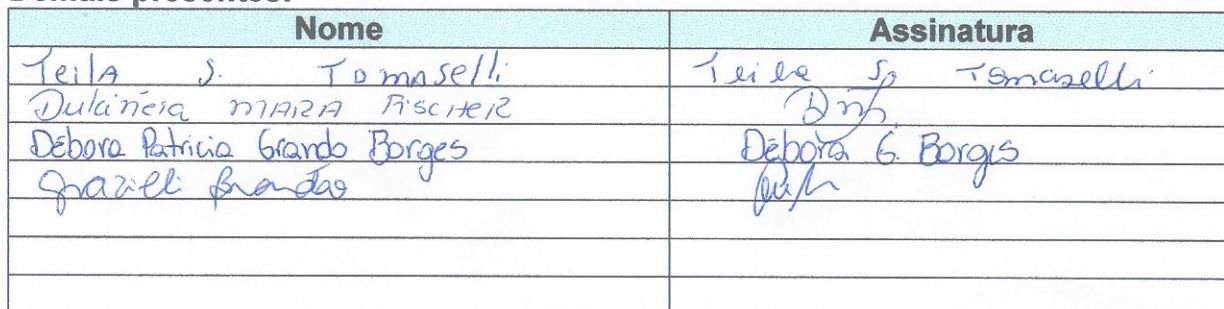 Nome Assinatura
Teila S. Tomaselli Teila S. Tomaselli
Dulcinéia MARA FISCHER
Débora Patricia Grando Borges Débora G. Borges
Grazieli Brandão